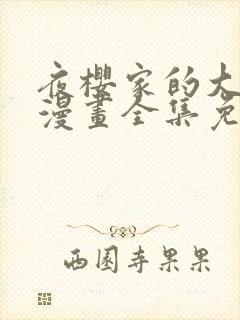 夜櫻家的大
漫畫全集免
西園寺果果